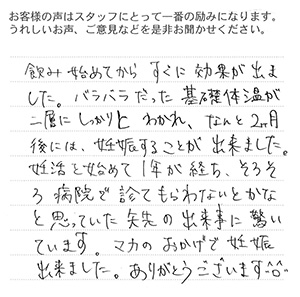 お客様の声はスタッフにとって一番の励みになります。
うれしいお声、ご意見などを是非お聞かせください。
飲み始めてから すぐに効果が出ま
した。バラバラだった 基礎体温が
二層に しっかりと わかれ、なんと2ヶ月
後には、妊娠することが 出来ました。
妊活を始めて 1年が経ち、そろそ
ろ 病院で 診てもらわないとかな
と思っていた矢先の 出来事に 驚い
ています。マカの おかげで 妊娠
出来ました。ありがとうございます^o^